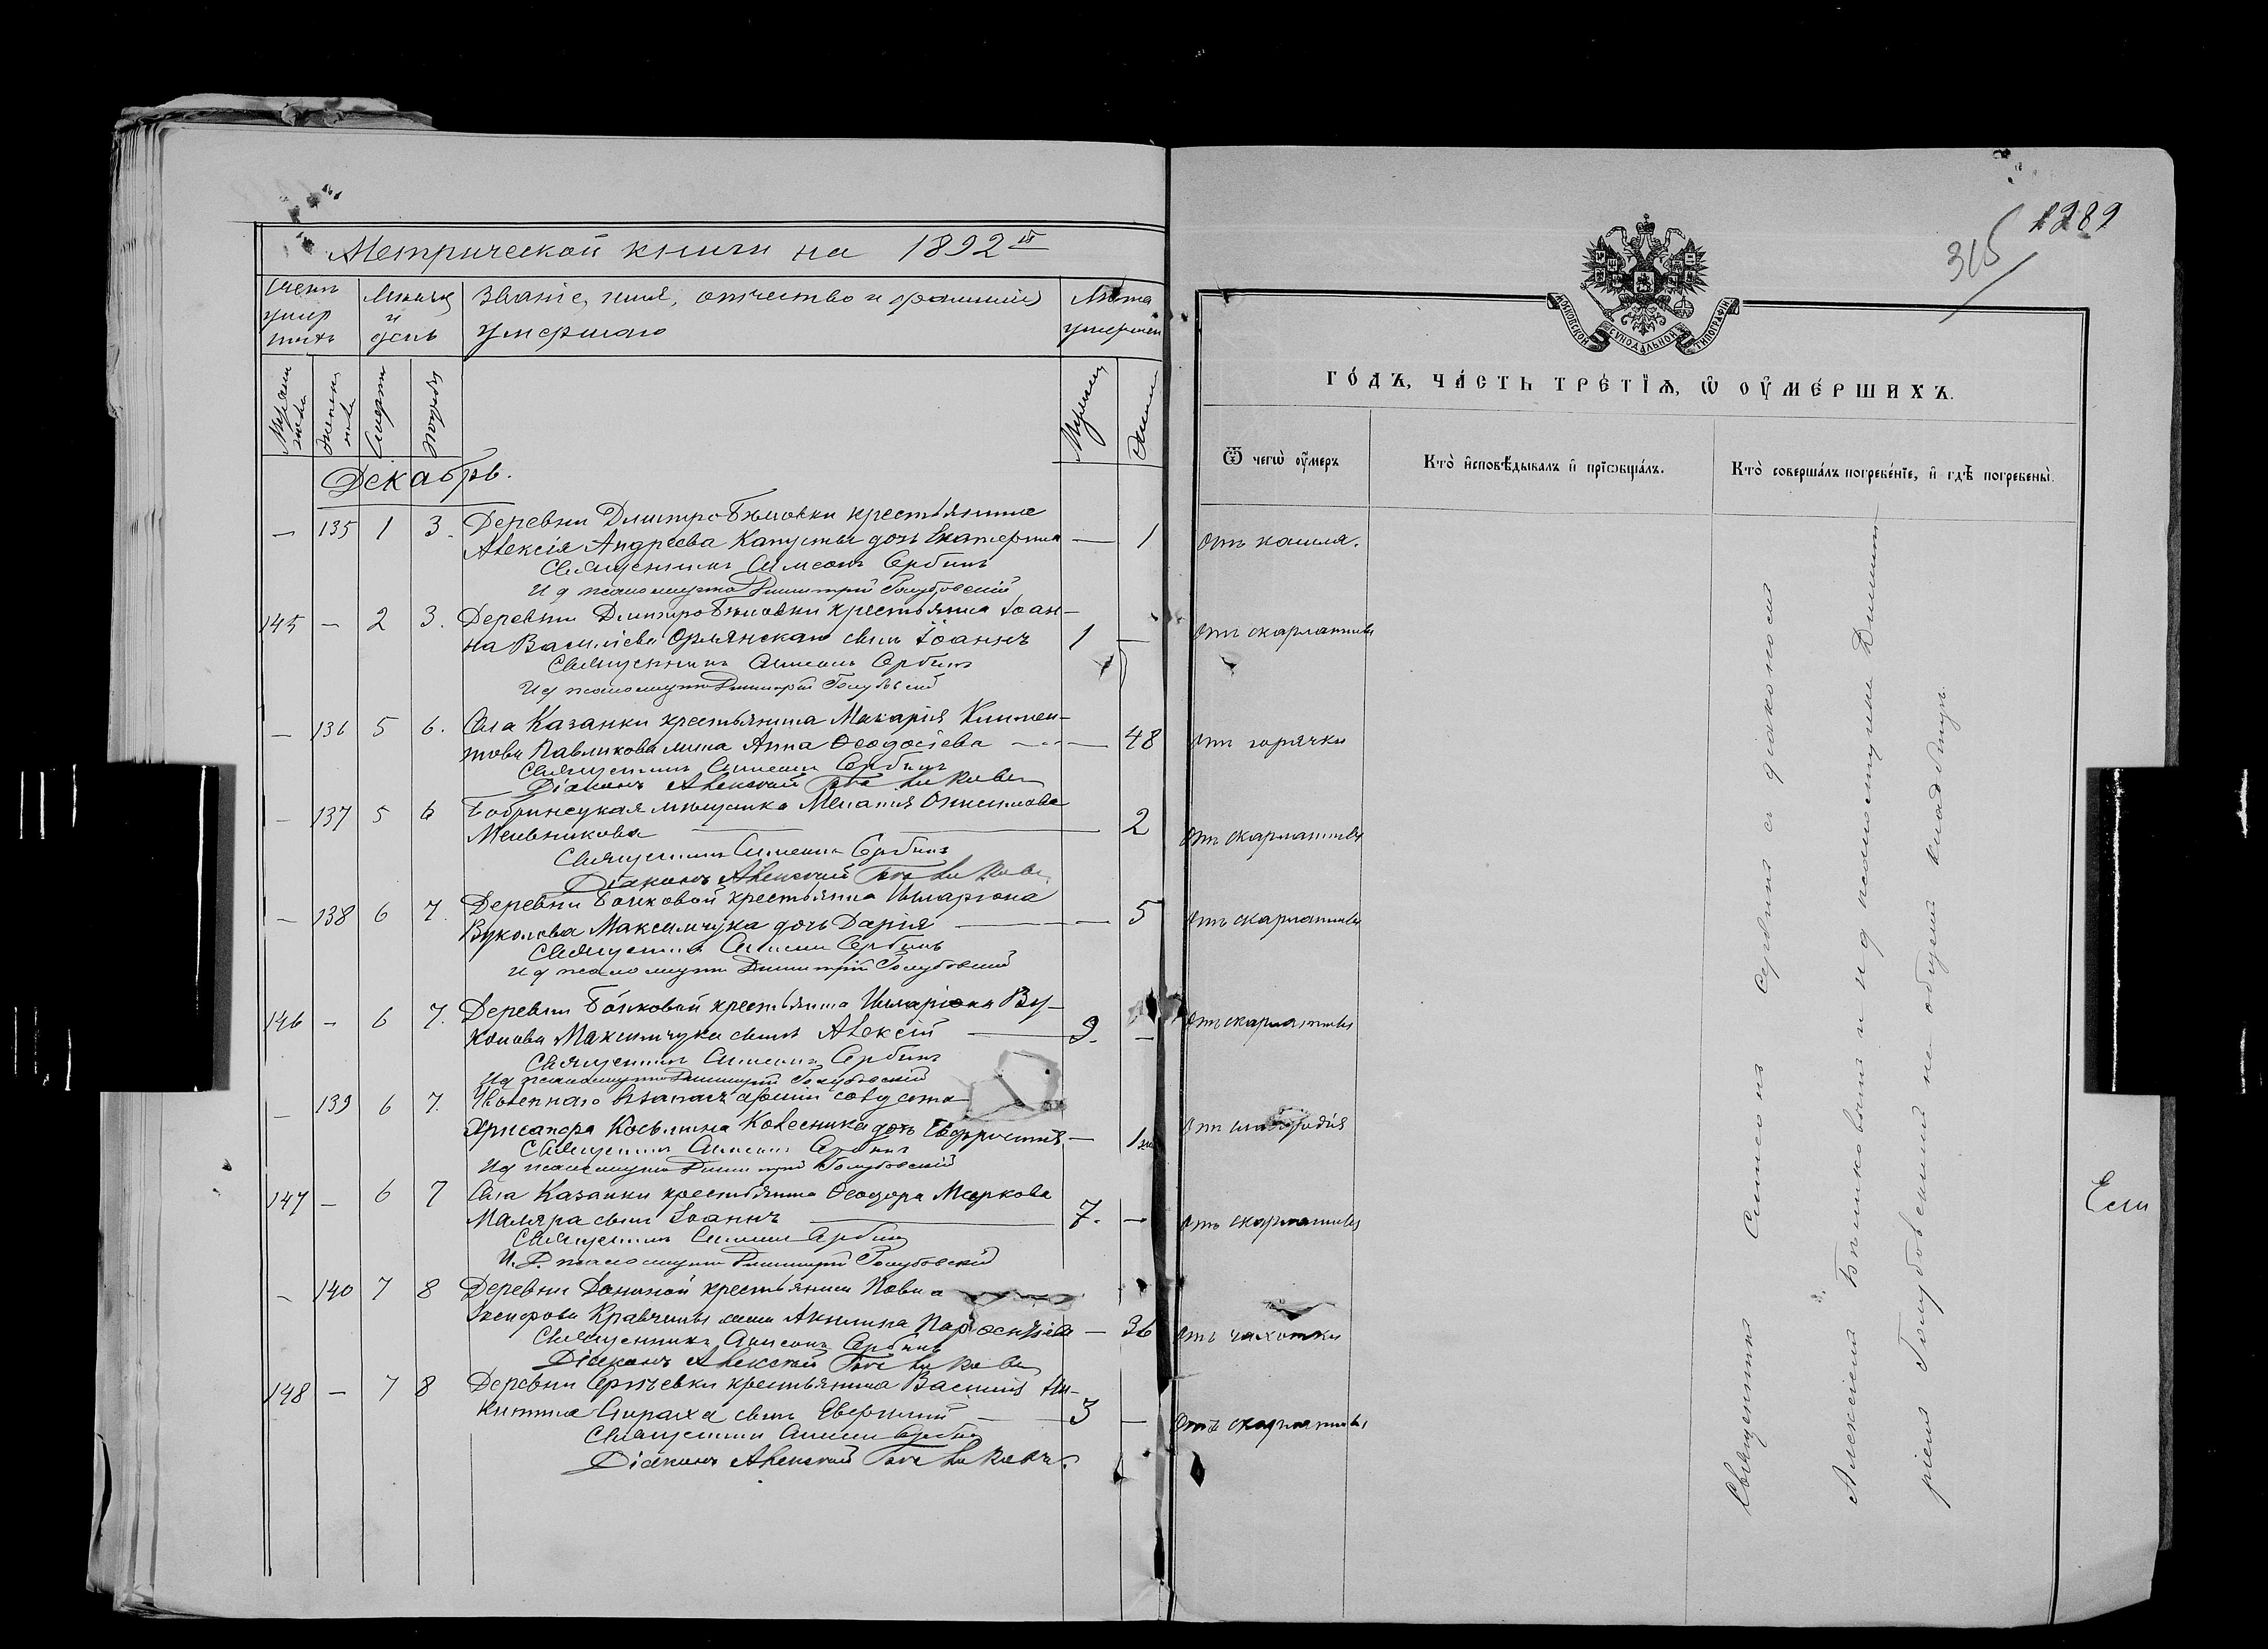 Метрической книги на 1892й
1289
315
МОСКОВСКОЙ СѴНОДАЛЬНОЙ ТИПОГРАФІИ
ГО́ДЪ, ЧА́СТЬ ТРЕ́ТЇѦ, Ѡ҆ ОУ҆МЕ́РШИХЪ.
Счетъ умершихъ
Мѣсяцъ и день
Званіе, имя, отчество и фамилія умершаго
Лѣта умершаго
Ѿ чегѡ̀ оу҆́меръ
Кто̀ и҆сповѣ́дывалъ и҆ прїѡбща́лъ.
Кто̀ соверша́лъ погребе́нїе, и҆ гдѣ̀ погребены̀.
Мужеска
Женска
Смерти
Погребе
Мужеск
Женск
Декабрь.
— 135 1 3. Деревни Дмитро Бѣловки крестьянина
Алексія Андреева Капусты дочь Екатерина — 1 Отъ кашля.
Священникъ Симеонъ Сербинъ
И д псаломщика Димитрій Голубовскій
145 — 2 3. Деревни Дмитро Бѣловки крестьянина Іоан-
на Василіева Орлянскаго сынъ Іоаннъ 1 — Отъ скарлатины
Священникъ Симеонъ Сербинъ
И д псаломщика Димитрій Голубовскій
— 136 5 6. Села Казанки крестьянина Макарія Климен-
това Павликова жена Анна Ѳеодосіева — 48 Отъ горячки
Священникъ Симеонъ Сербинъ
Діаконъ Алексѣй
— 137 5 6 Бобринецкая мѣщанка Меланія Онисимова
Мельникова — 2 Отъ скарлатины
Священникъ Симеонъ Сербинъ
Діаконъ Алексѣй
— 138 6 7. Деревни крестьянина Иларіона
Вуколова Максимчука дочь Дарія — 5 Отъ скарлатины
Священникъ Симеонъ Сербинъ
И д псаломщика Димитрій Голубовскій
146 — 6 7. Деревни крестьянина Иларіона Ву-
колова Максимчука сынъ Алексій 9. — Отъ скарлатины
Священникъ Симеонъ Сербинъ
И д псаломщика Димитрій Голубовскій
— 139 6 7. Уволеннаго въ запасъ арміи солдата
Хрисанфа Косьмина Колесника дочь Евфросинія — 1 Отъ
Священникъ Симеонъ Сербинъ
И д псаломщика Димитрій Голубовскій
147 — 6 7 Села Казанки крестьянина Ѳеодора Маркова
Маляра сынъ Іоаннъ 7. — Отъ скарлатины
Священникъ Симеонъ Сербинъ
И. Д. псаломщика Димитрій Голубовскій
— 140 7 8 Деревни крестьянина Павла
Іосифова жена Акилина — 36 Отъ чахотки
Священникъ Симеонъ Сербинъ
Діаконъ Алексѣй
148 — 7 8 Деревни Сергѣевки крестьянина Василія Ни-
китина сынъ 3 — Отъ скарлатины
Священникъ Симеонъ Сербинъ
Діаконъ Алексѣй
Священникъ Симеонъ Сербинъ съ діакономъ
Алексіемъ и и д псаломщика Димит-
ріемъ Голубовскимъ на общемъ кладбищѣ.
Если